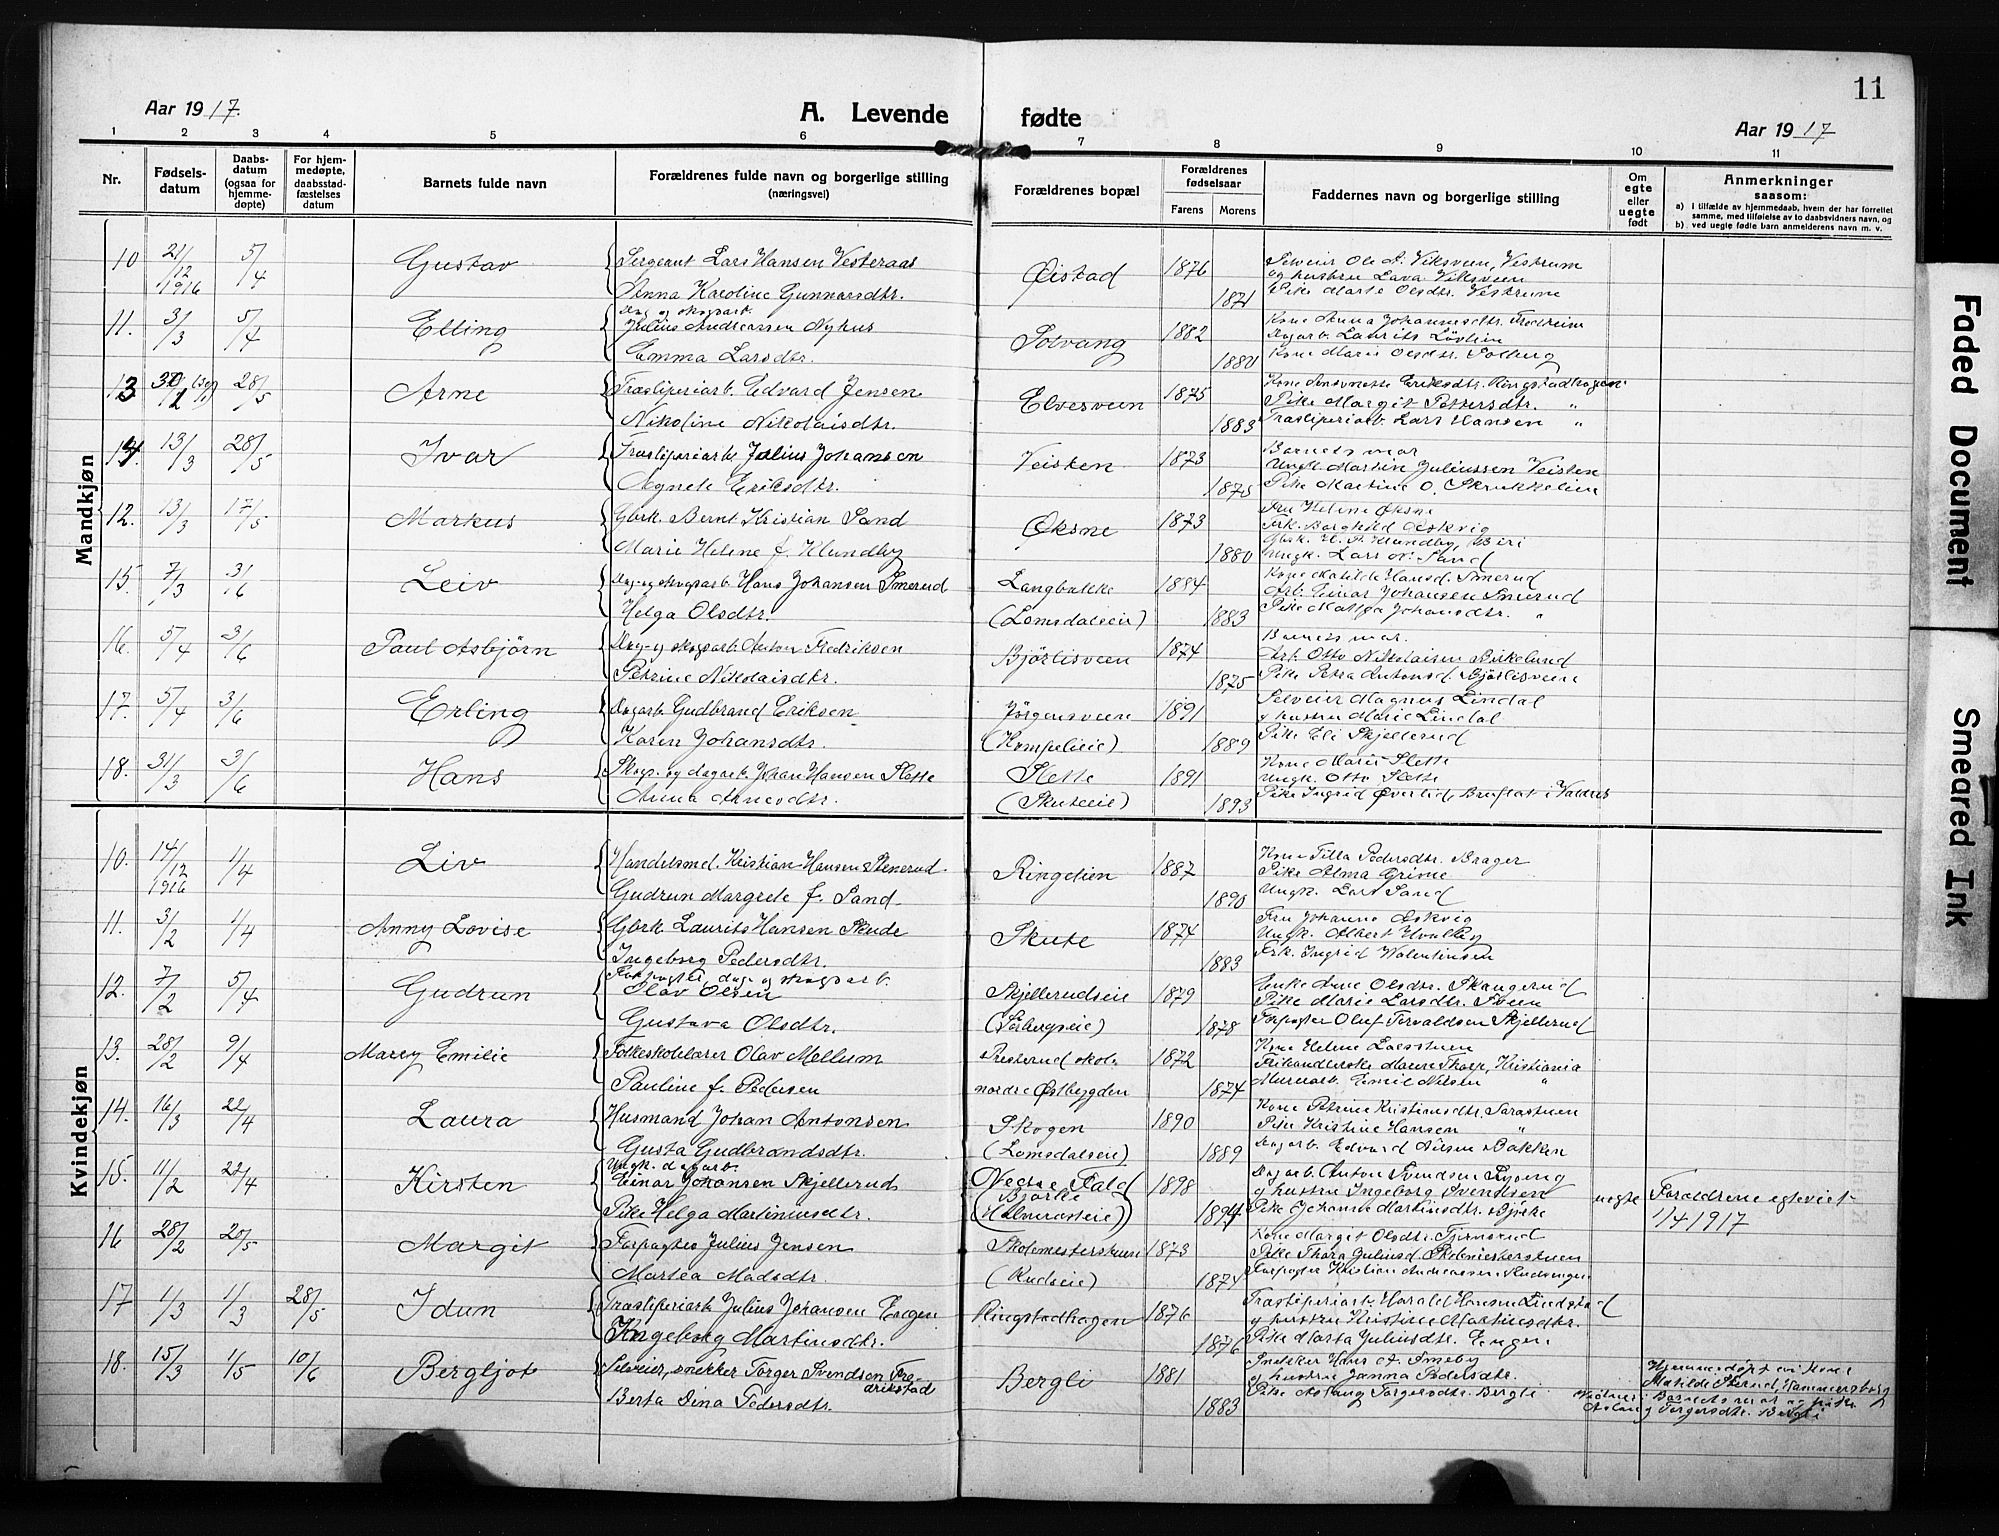 11
Aar 1917.
A. Levende fødte
Aar 1917
1 2 3 4 5 6 7 8 9 10 11
Nr.
Fødsels-
datum
Daabs-
datum
(ogsaa for
hjemme-
døpte)
For hjem-
medøpte,
daabsstad-
fæstelses
datum
Barnets fulde navn
Forældrenes fulde navn og borgerlige stilling
(næringsvei)
Forældrenes bopæl
Forældrenes
fødselsaar
Farens Morens
Faddernes navn og borgerlige stilling
Om
egte
eller
uegte
født
Anmerkninger
saasom:
a) I tilfælde av hjemmedaab, hvem der har forrettet
samme, med tilføielse av to daabsvidners navn, og
b) ved uegte fødte barn anmelderens navn m. v.
Mandkjøn
10 21/12 1916 5/4 Gustav
Sergeant Lars Hansen Vesteraas
Anna Karoline Gunnarsdtr.
Øistad 1876 1871
Selveier Ole A. Viksveen, Vestrum
og hustru Lava Viksveen
Pike Marte Olsdtr. Vestrum
11. 3/3 5/4 Elling
Dag og skogsarb.
Julius Andreassen Nyhus
Emma Larsdtr.
Solvang 1882 1880
Kone Anna Johannesdtr. Fredheim
Dagarb. Laurits Lövlien
Kone Marie Olsdtr. Solberg
13 28/5 Arne
Træsliperiarb. Edvard Jensen
Nikoline Nikolaisdtr.
Elvesveen 1875 1883
Kone Eriksdtr. Ringstadhagen
Pike Margit Pettersdtr. "
Træsliperiarb. Lars Hansen "
14. 13/3 28/5 Ivar
Træsliperiarb. Julius Johansen
Agnete Eriksdtr.
Veisten 1873 1875
Barnets mor
Ungk. Martin Juliussen Veisten
Pike Martine O. Skrukkelien
12. 13/3 17/5 Markus
Gbrk. Bernt Kristian Sand
Marie Helene f. Klundby
Øksne 1873 1880
Fru Helene Øksne
Frk. Borghild Askvig
Gbrk. H. P. Klundby, Biri
Ungk. Lars N. Sand
15. 7/3 3/6 Leiv
Dag- og skogsarb. Hans Johansen Smerud
Helga Olsdtr.
Langbakke
(Lomsdaleie) 1884 1883
Kone Matilde Hansd. Smerud
Arb. Einar Johansen Smerud
Pike Johansdtr. "
16. 5/4 3/6 Paul Asbjörn
Dag- og skogsarb. Anton Fredriksen
Petrine Nikolaisdtr.
Björlisveen 1874 1875
Barnets mor.
Arb. Otto Nikolaisen Birkelund
Pike Petra Antonsd. Björlisveen
17. 5/4 3/6 Erling
Dagarb. Gudbrand Eriksen
Karen Johansdtr.
Jörgensveen
(Kompelieie) 1891 1889
Selveier Magnus Lindal
og hustru Marie Lindal
Pike Eli Skjellerud
18. 31/3 3/6 Hans
Skogs- og dagarb. Johan Hansen Slette
Anna Arnesdtr.
Slette
(Skuteeie) 1891 1893
Kone Marie Slette
Ungk. Otto Slette
Pike Ingrid Øverlid, Bruflat i Valdres
Kvindekjøn
10. 14/12 1916 1/4 Liv
Handelsmd. Kristian Hansen Stenerud
Gudrun Margrete f. Sand
Ringelien 1887 1890
Kone Tilla Pedersdtr. Brager
Pike Alma Grime
Ungk. Lars Sand
11. 3/2 1/4 Anny Lovise
Gbrk. Laurits Hansen Skude
Ingeborg Pedersdtr.
Skute 1874 1883
Fru Johanne Askvig
Ungk. Albert
Frk. Ingrid Walentinsen
12. 7/2 5/4 Gudrun
Forpagter, dag- og skogsarb.
Olav Olsen
Gustava Olsdtr.
Skjellerudseie
(Sörbergseie) 1879 1878
Enke Anne Olsdtr. Skangerud
Pike Marie Larsdtr. Sveen
Forpagter Oluf Torvaldsen Skjellerud
13. 28/2 9/4 Marey Emilie
Folkeskolelærer Olav Mellum
Pauline f. Pedersen
Presterud skole
nordre Østbygden 1872 1874
Kone Helene Larsstuen
Frikandlerske Maren Thorp, Kristiania
Murerarb. Emil Nilsen "
14. 16/3 22/4 Laura
Husmand Johan Antonsen
Gusta Gudbrandsdtr.
Skogen
(Lomsdaleie) 1890 1889
Kone Petrine Kristiansdtr. Sarastuen
Pike Kristine Hansen "
Dagarb. Edvard Nilsen Bakken
15. 11/2 22/4 Kirsten
Ungk. dagarb.
Einar Johansen Skjellerud
Pike Helga Martiniusdtr.
Nedre Fald
Björke
(Halmraseie) 1898 1894
Dagarb. Anton Svendsen Lyeng
og hustru Ingeborg Svendsen
Pike Johanne Martinsdtr. Björke
uegte
Forældrene egteviet
1/4 1917
16 28/2 20/5 Margit
Forpagter Julius Jensen
Martea Madsdtr.
Skolemesterstuen
(Rudseie) 1873 1874
Kone Margit Olsdtr. Tjernsrud
Pike Thora Juliusd. Skolemesterstuen
Forpagter Kristian Andreassen Rudsengen
17 1/3 1/3 28/5 Idun
Træsliperiarb. Julius Johansen Engen
Ingeborg Martinsdtr.
Ringstadhagen 1876 1876
Træsliperiarb. Harald Hansen Lindstad
og hustru Kristine Martinsdtr.
Pike Marta Juliusdtr. Engen
18. 15/3 1/5 10/6 Bergljot
Selveier, snekker Torger Svendsen Fre-
drikstad
Berta Dina Pedersdtr.
Bergli 1881 1883
Snekker Hans A. Smeby
og hustru Janna Pedersdtr.
Pike Aslaug Torgersdtr. Bergli
Hjemmedöpt av kone
Matilde Sterud, Hammersborg
Vidner: Barnets mor og pike
Aslaug Torgersdtr. Bergli
Faded Document
Smeared Ink